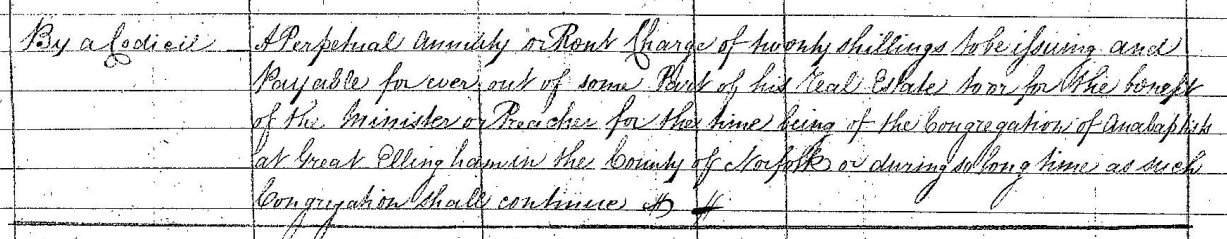 By a Codicil A Perpetual Annuity or Rent Charge of twenty shillings to be issuing and
Payable for ever out of some Part of his Real Estate to or for the benefit
of the Minister or Preacher for the time being of the Congregation of Anabaptists
at Great Ellingham in the County of Norfolk or during so long time as such
Congregation shall continue